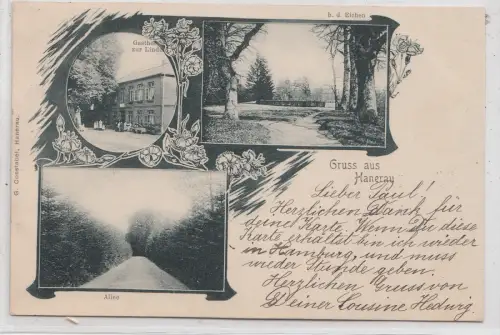 Gasthof
zur Linde
b. d. Eichen
Gruss aus
Hanerau
Allee
Lieber Paul!
Herzlichen Dank für
deine Karte. Wenn Du diese
Karte erhältst bin ich wieder
in Hamburg, und muss
wieder Stunde geben.
Herzlichen Gruss von
Deiner Cousine Hedwig.